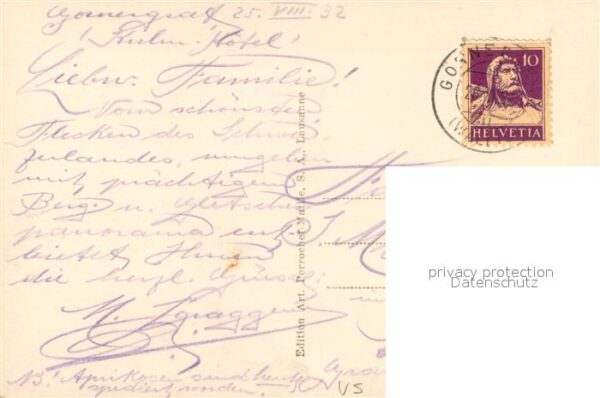 Gornergrat 25. VIII. 32
(Kulm-Hôtel)
Liebw. Familie!
Vom schönsten
Flecken des Schwei-
zerlandes, umgeben
mit prächtigem
Berg- u. Gletscher
panorama ent-
bietet Ihnen
die herzl. Grüsse:
M.
NB! Aprikosen sind heute
spediert worden.
Edition Art. Perrochet-Matile, S. A., Lausanne
10
HELVETIA
privacy protection
Datenschutz
VS